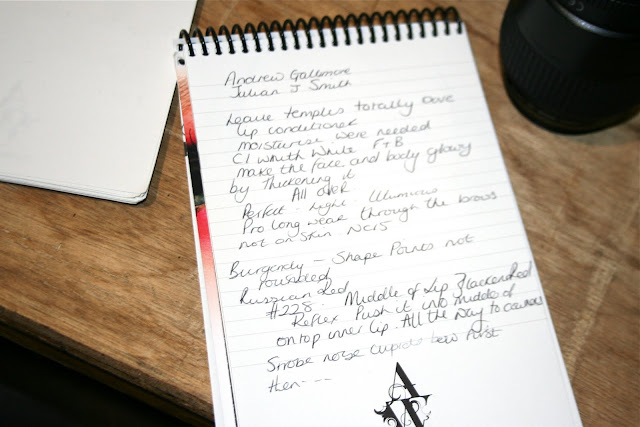 Andrew Gallimore
Julian J Smith
Leave temples totally
Lip conditioner
moisturise were needed
C1 White F+B
make the face and body glowy
by thickening it
All over
Perfect . Light . Illuminous
Pro long wear through the brows
not on skin NC15
Burgendy - Shape Points not
rounded
Russian Red
#228 - Middle of Lip Blackened Red
Reflex Push it into middle of
on top inner lip. All the way to
Strobe nose cupids bow first
then - - -